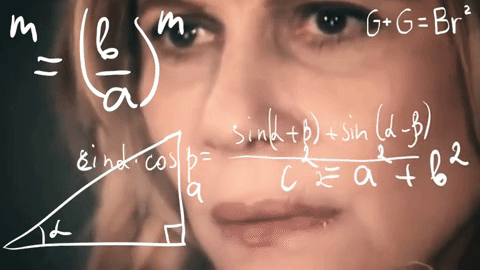 m = (b/a)^m
G+G=Br²
sinα·cosβ = sin(α+β)+sin(α-β)
c² = a² + b²
a
α